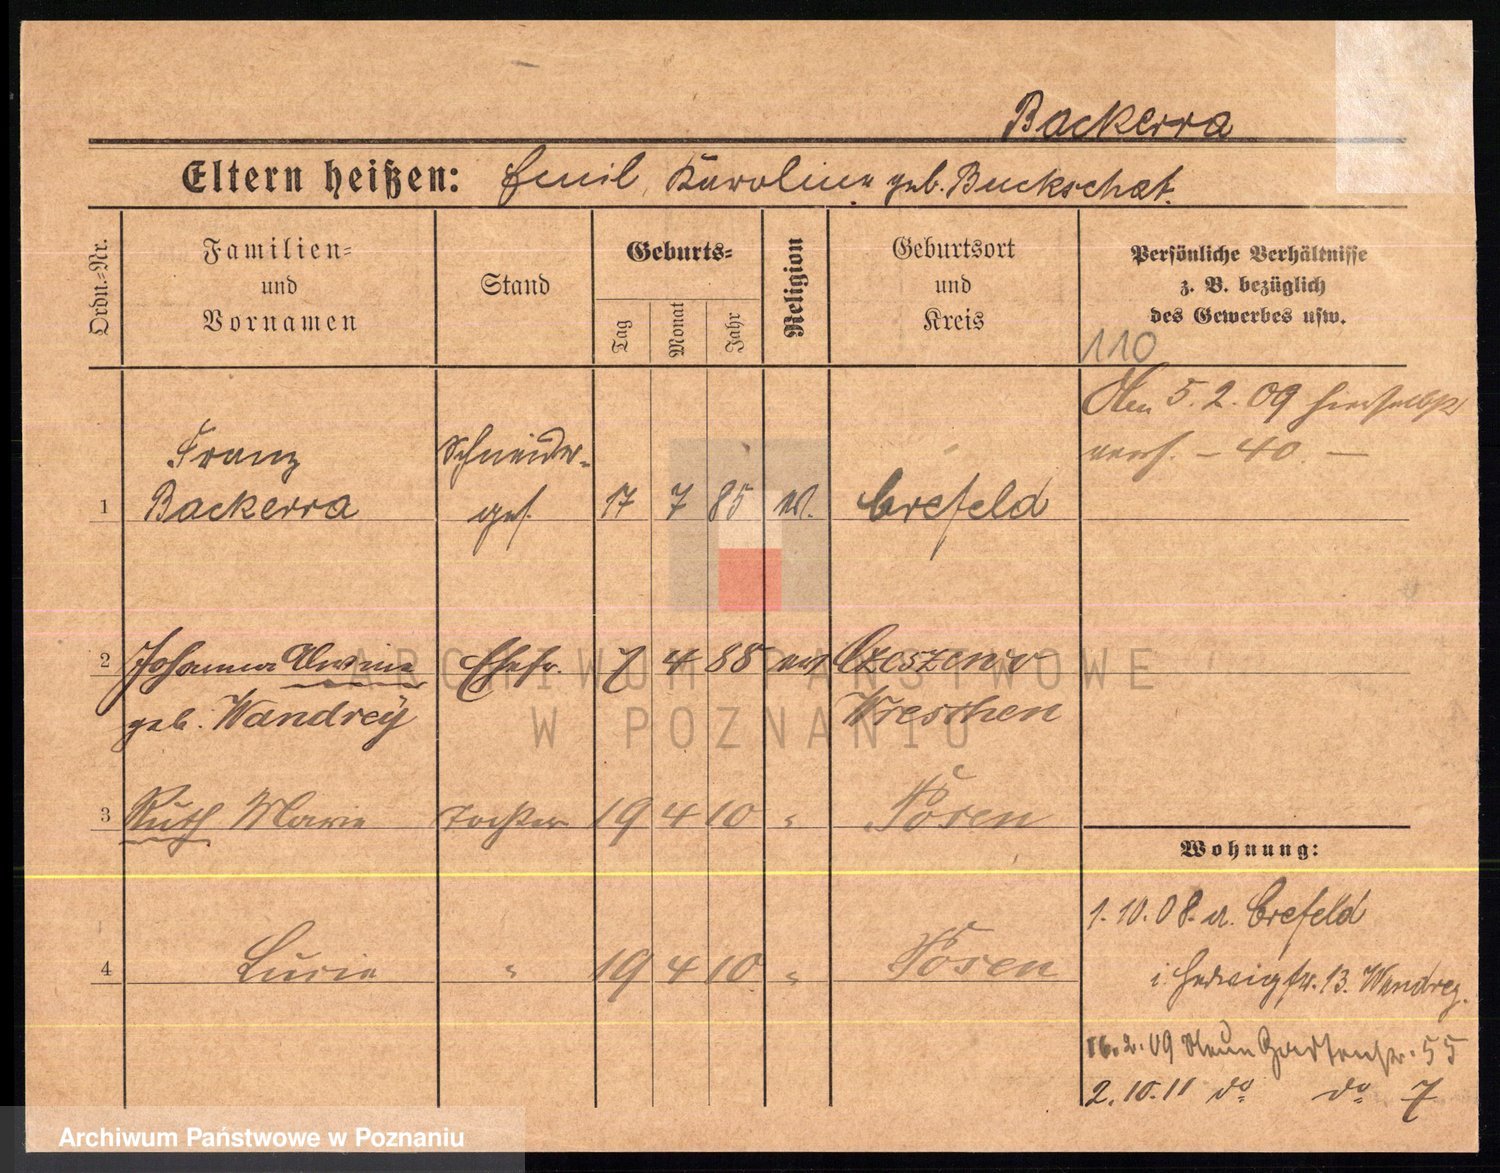 Backerra
Eltern heißen: Emil, Karoline geb. Buckschat.
Ordn.=Nr.
Familien=
und
Vornamen
Stand
Geburts=
Tag
Monat
Jahr
Religion
Geburtsort
und
Kreis
Persönliche Verhältnisse
z. B. bezüglich
des Gewerbes usw.
110
Den 5.2.09 hierselbst
verh. – 40. –
Franz Schneider-
1 Backerra ges. 17 7 85 Crefeld
2 Johanna Alwine Ehefr. 7 4 88 ev. Czeszewo
geb. Wandrey Wreschen
3 Ruth Marie Tochter 19 4 10 " Posen
4 Lucie " 19 4 10 " Posen
Wohnung:
1.10.08. v. Crefeld
i. Hedwigstr. 13. Wandrey.
16.2.09 Neue Gartenstr. 55
2.10.11 do do 7
ARCHIWUM PAŃSTWOWE
W POZNANIU
Archiwum Państwowe w Poznaniu